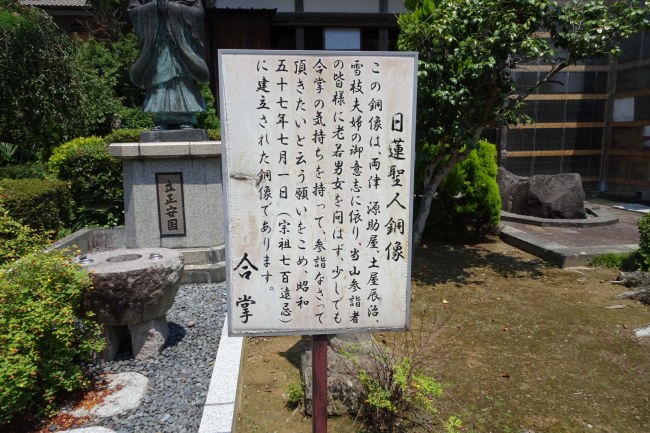 日蓮聖人銅像
この銅像は、両津 源助屋土屋辰治、
雪枝夫婦の御意志に依り、当山参詣者
の皆様に老若男女を問はず、少しでも
合掌の気持ちを持って、参詣なさって
頂きたいと云う願いをこめ、昭和
五十七年七月一日(宗祖七百遠忌)
に建立された銅像であります。
合掌
立正安国